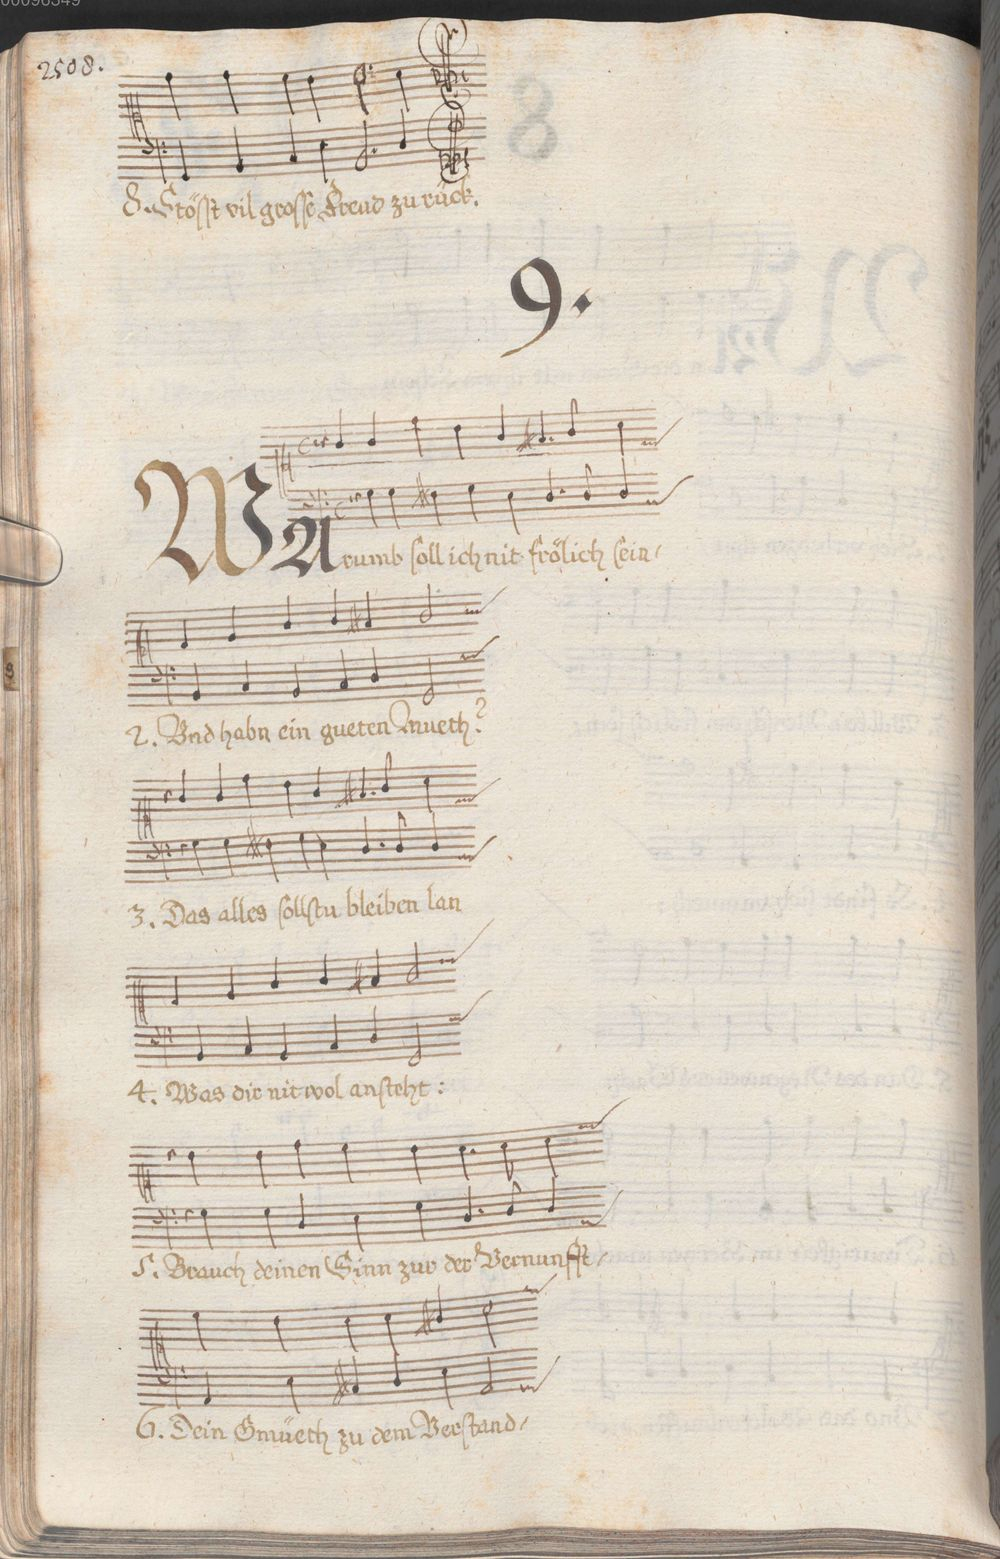 00096349
2508.
8. Stösst vil grosse Freud zu rück.
9.
WArumb soll ich nit frölich sein/
2. Vnd habn ein gueten Mueth?
3. Das alles sollstu bleiben lan
4. Was dir nit wol ansteht:
5. Brauch deinen Sinn zur der Vernunfft/
6. Dein Gmüeth zu dem Verstand/